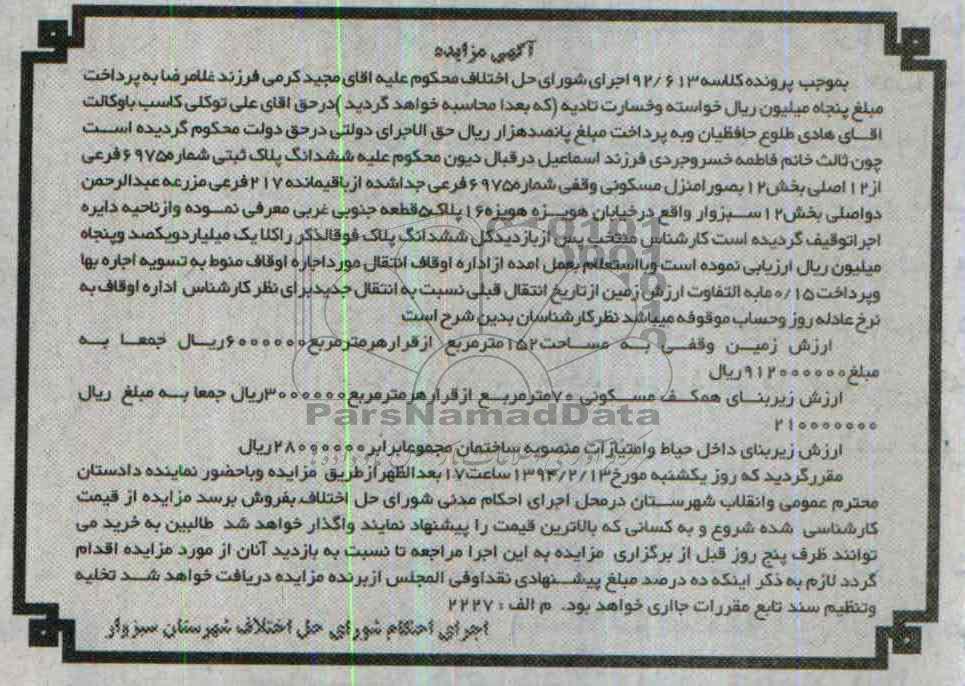 آگهی مزایده
بموجب پرونده کلاسه ۹۲/۶۱۳ اجرای شورای حل اختلاف محکوم علیه اقای مجید کرمی فرزند غلامرضا به پرداخت
مبلغ پنجاه میلیون ریال خواسته وخسارت تادیه (که بعدا محاسبه خواهد گردید )درحق اقای علی توکلی کاسب باوکالت
اقای هادی طلوع حافظیان وبه پرداخت مبلغ پانصدهزار ریال حق الاجرای دولتی درحق دولت محکوم گردیده است
چون ثالث خانم فاطمه خسروجردی فرزند اسماعیل درقبال دیون محکوم علیه ششدانگ پلاک ثبتی شماره ۶۹۷۵ فرعی
از ۱۲ اصلی بخش ۱۲ بصورامنزل مسکونی وقفی شماره ۶۹۷۵ فرعی جداشده ازباقیمانده ۲۱۷ فرعی مزرعه عبدالرحمن
دواصلی بخش ۱۲ سبزوار واقع درخیابان هویزه هویزه ۱۶ پلاک ۵ قطعه جنوبی غربی معرفی نموده وازناحیه دایره
اجراتوقیف گردیده است کارشناس منتخب پس ازبازدیدکل ششدانگ پلاک فوق الذکر راکلا یک میلیاردویکصد وپنجاه
میلیون ریال ارزیابی نموده است وبااستعلام بعمل امده ازاداره اوقاف انتقال مورداجاره اوقاف منوط به تسویه اجاره بها
وپرداخت ۰/۱۵ مابه التفاوت ارزش زمین ازتاریخ انتقال قبلی نسبت به انتقال جدیدبرای نظر کارشناس اداره اوقاف به
نرخ عادله روز وحساب موقوفه میباشد نظرکارشناسان بدین شرح است
ارزش زمین وقفی به مساحت ۱۵۲ مترمربع ازقرارهرمترمربع ۶۰۰۰۰۰۰ ریال جمعا به
مبلغ ۹۱۲۰۰۰۰۰۰ ریال
ارزش زیربنای همکف مسکونی ۷۰ مترمربع ازقرارهرمترمربع ۳۰۰۰۰۰۰ ریال جمعا به مبلغ ریال
۲۱۰۰۰۰۰۰۰
ارزش زیربنای داخل حیاط وامتیازات منصوبه ساختمان مجموعابرابر ۲۸۰۰۰۰۰۰ ریال
مقررگردید که روز یکشنبه مورخ ۱۳۹۴/۲/۱۳ ساعت ۱۷ بعدالظهرازطریق مزایده وباحضور نماینده دادستان
محترم عمومی وانقلاب شهرستان درمحل اجرای احکام مدنی شورای حل اختلاف بفروش برسد مزایده از قیمت
کارشناسی شده شروع و به کسانی که بالاترین قیمت را پیشنهاد نمایند واگذار خواهد شد طالبین به خرید می
توانند ظرف پنج روز قبل از برگزاری مزایده به این اجرا مراجعه تا نسبت به بازدید آنان از مورد مزایده اقدام
گردد لازم به ذکر اینکه ده درصد مبلغ پیشنهادی نقدا وفی المجلس ازبرنده مزایده دریافت خواهد شد تخلیه
وتنظیم سند تابع مقررات جاری خواهد بود. م الف : ۲۲۲۷
اجرای احکام شورای حل اختلاف شهرستان سبزوار
ParsNamadData